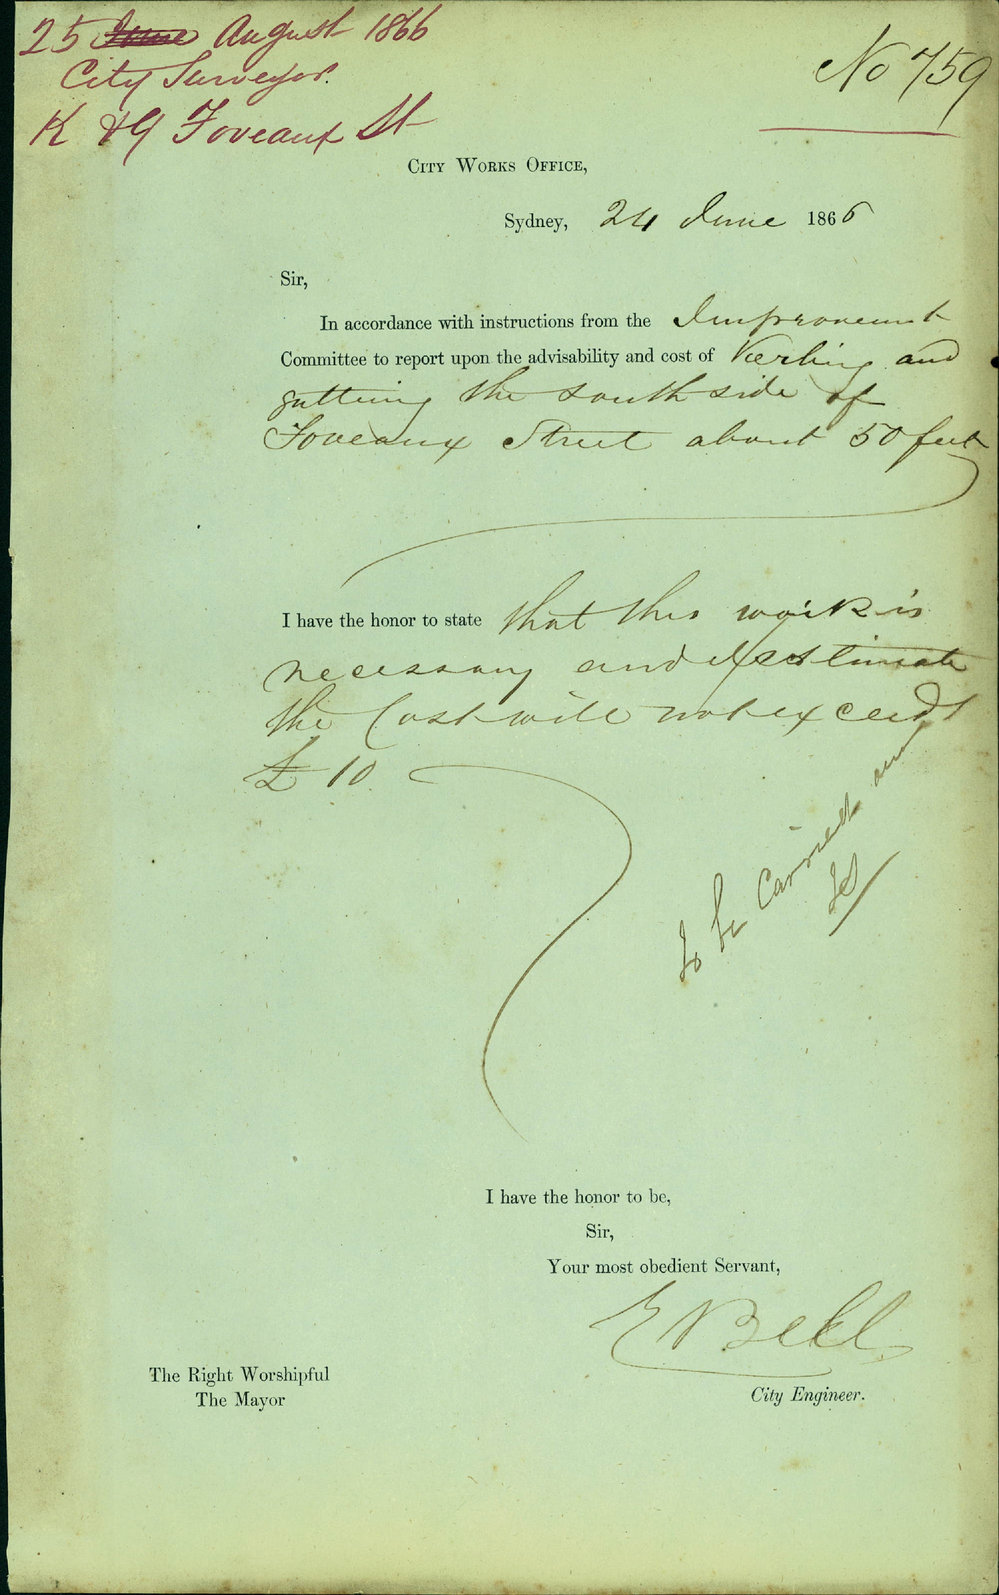 25 June August 1866
City Surveyor.
K & G Foveaux St
No 759
City Works Office,
Sydney, 24 June 1866
Sir,
In accordance with instructions from the Improvement
Committee to report upon the advisability and cost of Kerbing and
guttering the south side of
Foveaux Street about 50 feet
I have the honor to state that this work is
necessary and I estimate
the Cost will not exceed
£10
to be Carried out
I have the honor to be,
Sir,
Your most obedient Servant,
E Bell
City Engineer.
The Right Worshipful
The Mayor